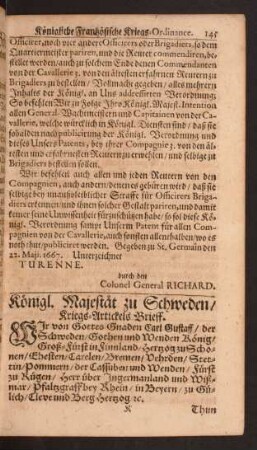 Königliche Französische Kriegs-Ordinance. 145
Officirer, noch vier andere Officirers oder Brigadiers, so dem
Quartiermeister pariren, und die Reuter commendiren, be-
stellet werden, auch zu solchem Ende denen Commendanten
von der Cavallerie 3. von den ältesten erfahrnen Reutern zu
Brigadiers zu bestellen / Vollmacht gegeben / alles mehrern
Inhalts der Königl. an Uns addressirten Verordnung.
So befehlen Wir zu Folge Ihro Königl. Majest. Intention
allen General-Wachtmeistern und Capitainen von der Ca-
vallerie, welche würcklich in Königl. Diensten sind / daß sie
so balden nach publicirung der Königl. Verordnung und
dieses Unsers Patents, bey ihrer Compagnie 3. von den äl-
testen und erfahrnesten Reutern zu erwehlen / und selbige zu
Brigadiers bestellen sollen.
Wir befehlen auch allen und jeden Reutern von den
Compagnien, auch andern / denen es gebüren wird / daß sie
selbige bey unausbleiblicher Straffe für Officirers Briga-
diers erkennen / und ihnen solcher Gestalt pariren, und damit
keiner seine Unwissenheit fürzuschützen habe / so sol diese Kö-
nigl. Verordnung samt Unserm Patent für allen Compag-
nien von der Cavallerie, auch sonsten allenthalben / wo es
noth thut / publiciret werden. Gegeben zu St. Germain den
22. Maji. 1667. Unterzeichnet
TURENNE.
durch den
Colonel General RICHARD.
Königl. Majestät zu Schweden /
Kriegs-Artickels Brieff.
WIr von Gottes Gnaden Carl Gustaff / der
Schweden / Gothen und Wenden König /
Groß-Fürst in Finnland / Hertzog zu Scho-
nen / Ehesten / Carelen / Bremen / Vehrden / Stet-
tin / Pommern / der Cassuben und Wenden / Fürst
zu Rügen / Herr über Ingermanland und Wiß-
mar / Pfaltzgraff bey Rhein / in Beyern / zu Gü-
lich / Cleve und Berg Hertzog ꝛc.
K Thun